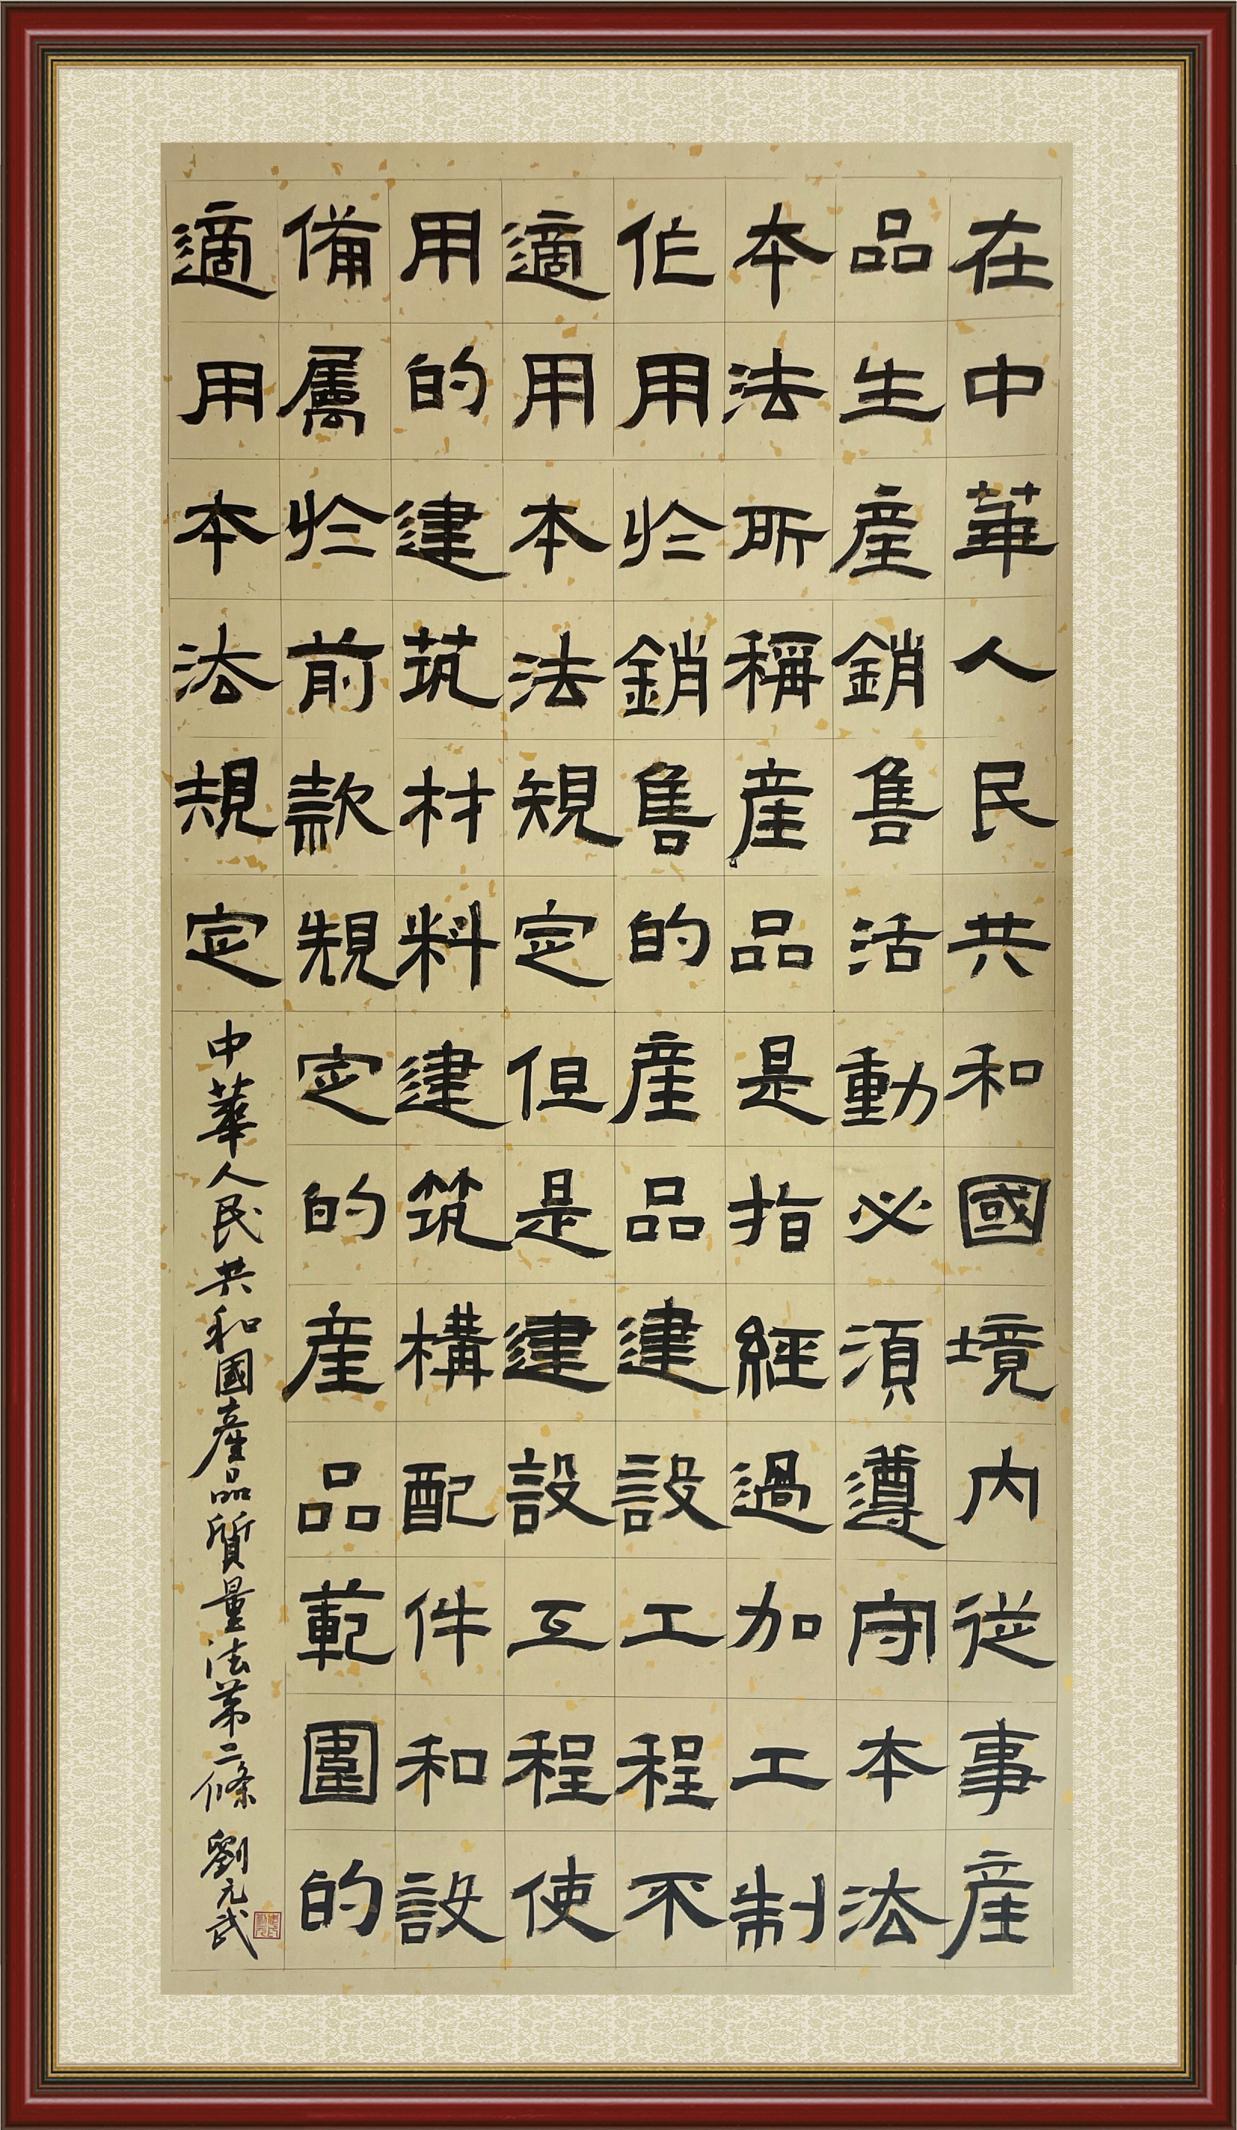 在中華人民共和國境内從事産
品生産銷售活動必須遵守本法
本法所稱産品是指經過加工制
作用於銷售的産品建設工程不
適用本法規定但是建設工程使
用的建筑材料建筑構配件和設
備屬於前款規定的産品範圍的
適用本法規定
中華人民共和國産品質量法第二條 劉元武